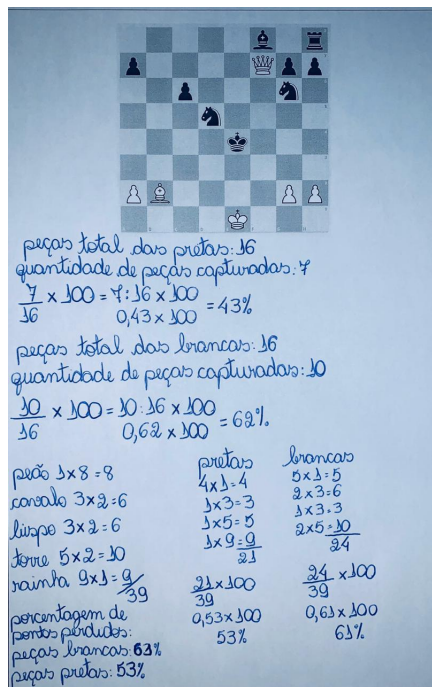 peças total das pretas: 16
quantidade de peças capturadas: 7
7/16 x 100 = 7:16 x 100 = 43%
0,43 x 100
peças total das brancas: 16
quantidade de peças capturadas: 10
10/16 x 100 = 10:16 x 100 = 62%
0,62 x 100
peão 1x8=8
cavalo 3x2=6
bispo 3x2=6
torre 5x2=10
rainha 9x1=9
39
porcentagem de
pontos perdidos:
peças brancas: 63%
peças pretas: 53%
pretas
4x1=4
1x3=3
1x5=5
1x9=9
21
21/39 x100
0,53x100
53%
brancas
5x1=5
2x3=6
1x3=3
2x5=10
24
24/39 x100
0,61x100
61%